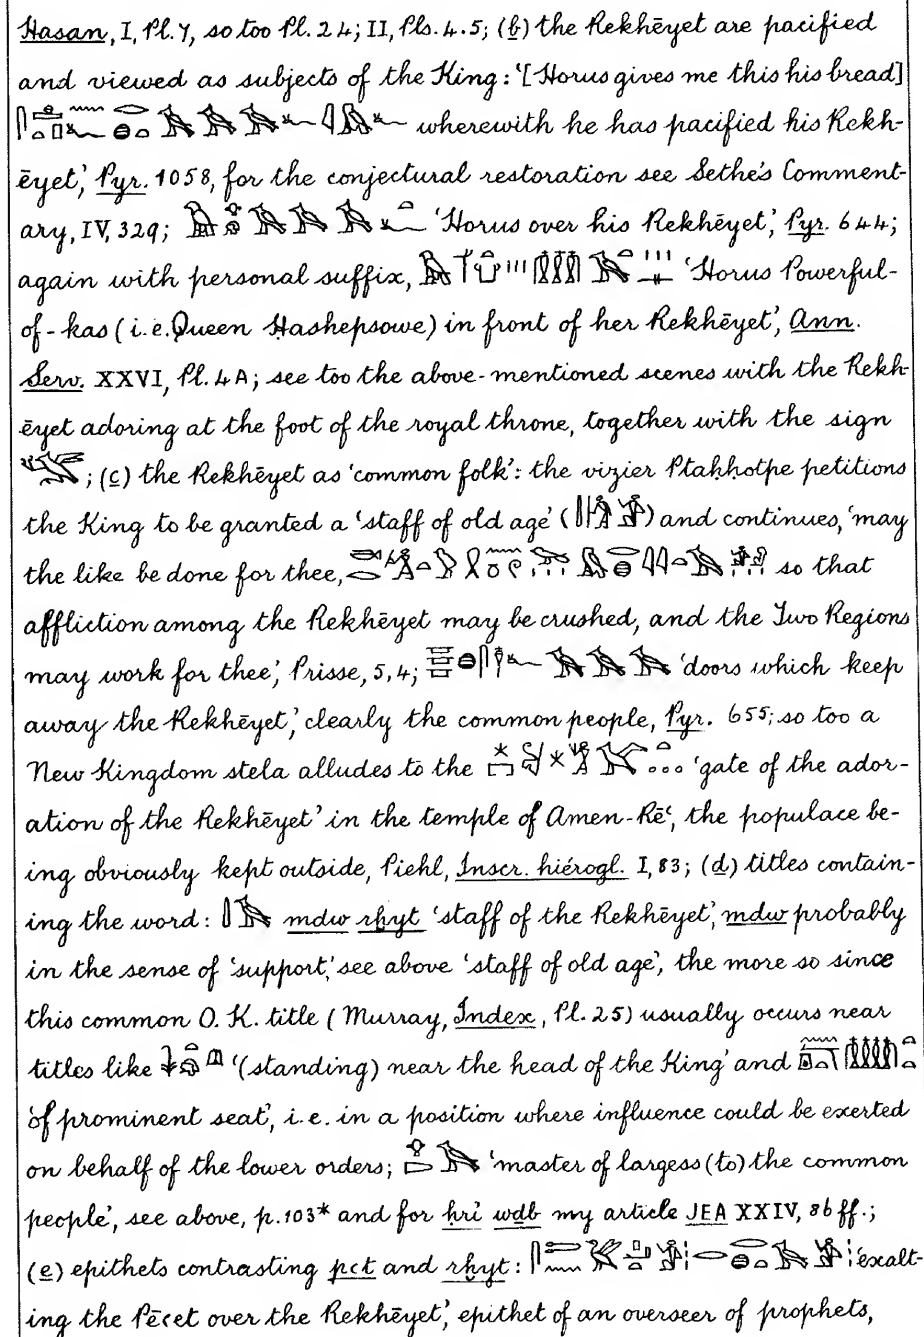 Hasan, I, Pl. 7, so too Pl. 24; II, Pls. 4.5; (b) the Rekhēyet are pacified
and viewed as subjects of the King: '[Horus gives me this his bread]
wherewith he has pacified his Rekh-
ēyet', Pyr. 1058, for the conjectural restoration see Sethe's Comment-
ary, IV, 329; 'Horus over his Rekhēyet', Pyr. 644;
again with personal suffix, 'Horus Powerful-
of-kas (i.e. Queen Ḥashepsowe) in front of her Rekhēyet', Ann.
Serv. XXVI, Pl. 4A; see too the above-mentioned scenes with the Rekh-
ēyet adoring at the foot of the royal throne, together with the sign
; (c) the Rekhēyet as 'common folk': the vizier Ptaḥḥotpe petitions
the King to be granted a 'staff of old age' ( ) and continues, 'may
the like be done for thee, so that
affliction among the Rekhēyet may be crushed, and the Two Regions
may work for thee', Prisse, 5,4; 'doors which keep
away the Rekhēyet', clearly the common people, Pyr. 655; so too a
New Kingdom stela alludes to the 'gate of the ador-
ation of the Rekhēyet' in the temple of Amen-Rēꜥ, the populace be-
ing obviously kept outside, Piehl, Inscr. hiérogl. I, 83; (d) titles contain-
ing the word: mdw rḫyt 'staff of the Rekhēyet', mdw probably
in the sense of 'support,' see above 'staff of old age', the more so since
this common O. K. title (Murray, Index, Pl. 25) usually occurs near
titles like '(standing) near the head of the King' and
'of prominent seat', i.e. in a position where influence could be exerted
on behalf of the lower orders; 'master of largess (to) the common
people', see above, p. 103* and for ḥri wdb my article JEA XXIV, 86 ff.;
(e) epithets contrasting pꜥt and rḫyt: 'exalt-
ing the Pēꜥet over the Rekhēyet', epithet of an overseer of prophets,